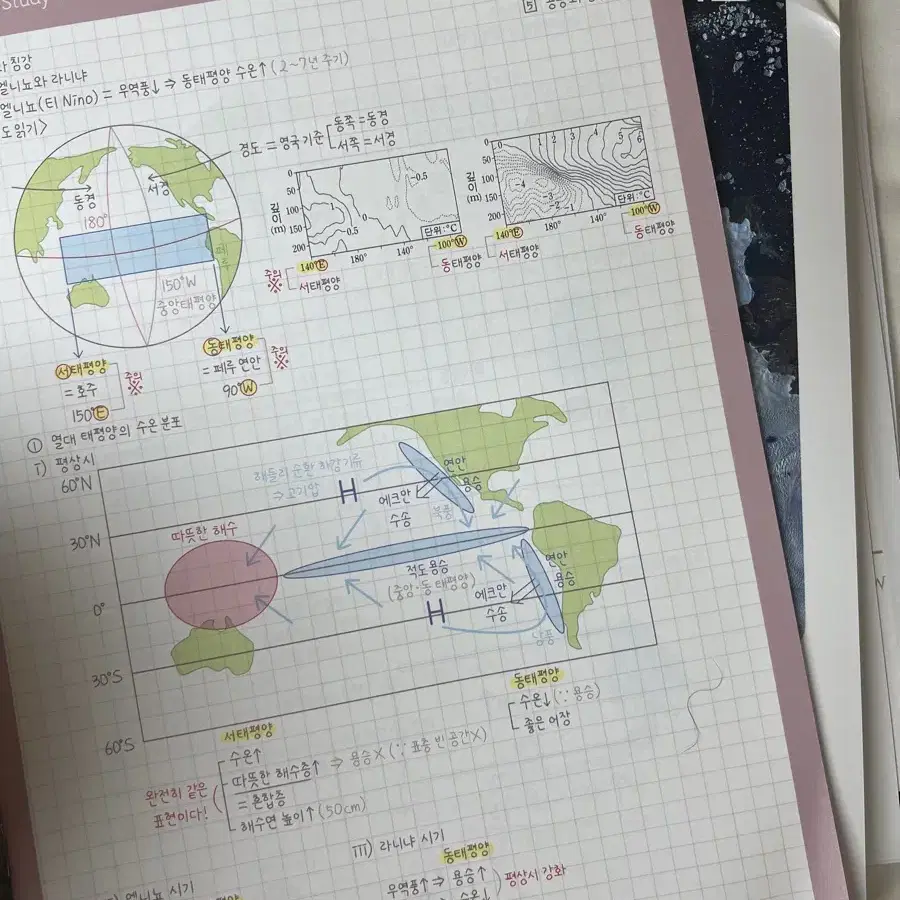 Study
5
침강
엘니뇨와 라니냐
엘니뇨(El Nino) = 무역풍↓ ⇒ 동태평양 수온↑ (2~7년 주기)
도읽기〉
경도 = 영국기준
동쪽 = 동경
서쪽 = 서경
동경
서경
180°
150°W
중앙태평양
페루
서태평양
= 호주
150°E
주의
※
동태평양
= 페루 연안
90°W
주의
※
깊이(m)
0
50
100
150
200
1
0.5
0
-0.5
단위:°C
140°E
180°
140°
100°W
주의
※
서태평양
동태평양
깊이(m)
0
50
100
150
200
0 1 2 3 4 5 6
-4
-3
-2
-1
단위:°C
140°E
180°
140°
100°W
서태평양
동태평양
① 열대 태평양의 수온 분포
i) 평상시
60°N
30°N
0°
30°S
60°S
해들리 순환 하강기류
⇒ 고기압
H
에크만
수송
연안
용승
북풍
따뜻한 해수
적도용승
(중앙·동태평양)
H
에크만
수송
연안
용승
남풍
동태평양
수온↓ (∵ 용승)
좋은 어장
서태평양
완전히 같은
표현이다!
수온↑
따뜻한 해수층↑ ⇒ 용승X (∵ 표층 빈 공간X)
= 혼합층
해수면 높이↑ (50cm)
엘니뇨 시기
iii) 라니냐 시기
동태평양
무역풍↑ ⇒ 용승↑
수온↓
평상시 강화